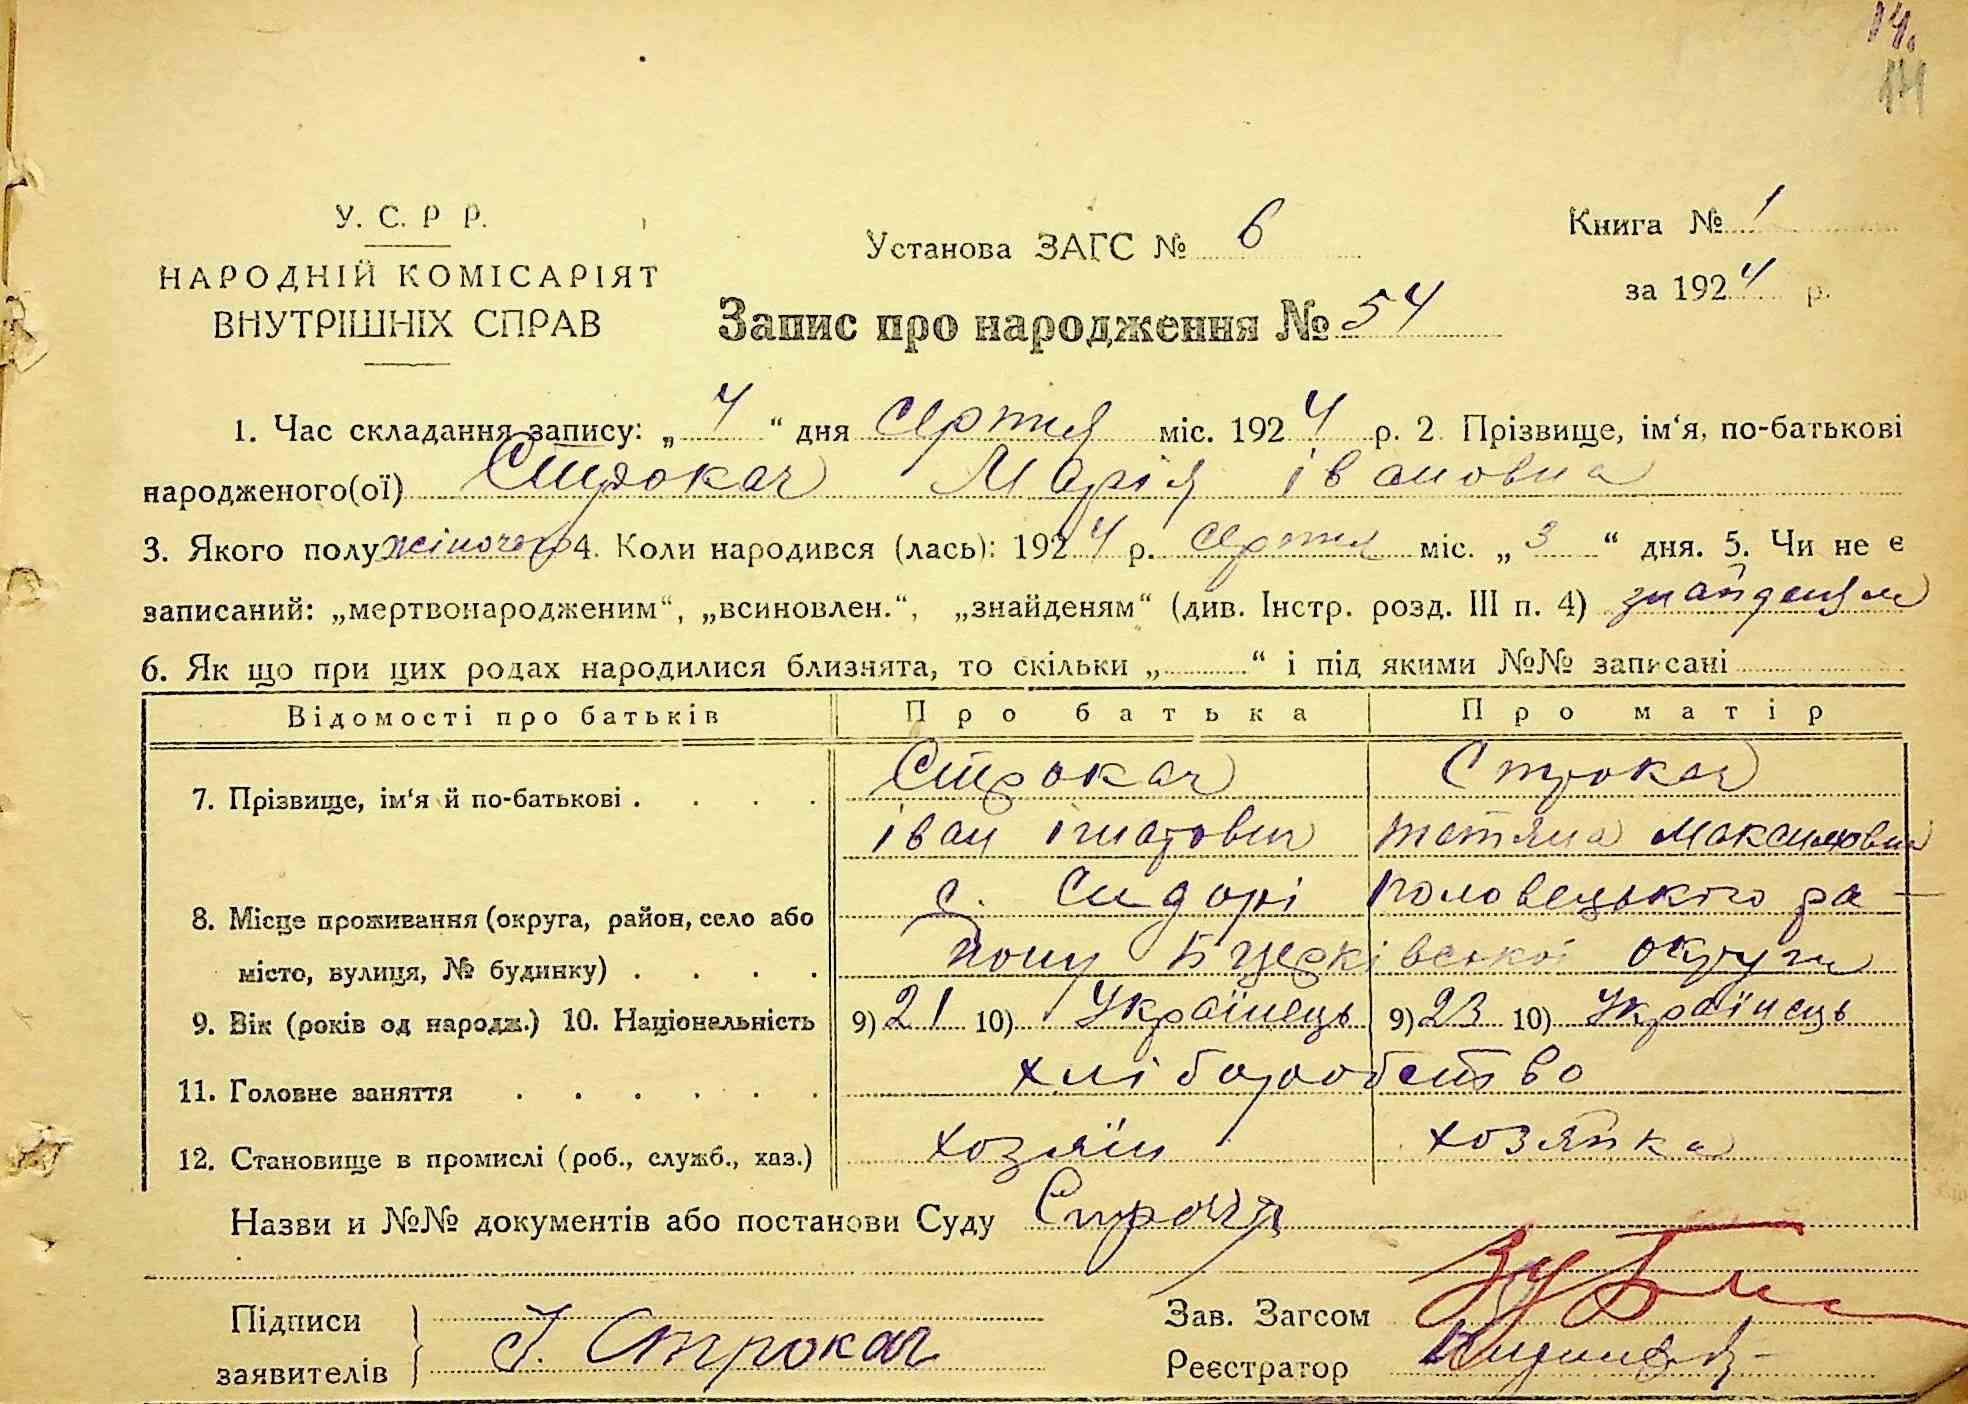 14.
14
У. С. Р Р.
НАРОДНІЙ КОМІСАРІЯТ
ВНУТРІШНІХ СПРАВ
Установа ЗАГС № 6
Запис про народження № 54
Книга № 1
за 1924 р.
1. Час складання запису: „ 4 “ дня серпня міс. 1924 р. 2. Прізвище, ім‘я, по-батькові
народженого(ої) Строкач Марія Івановна
3. Якого полу жіночого 4. Коли народився (лась): 1924 р. серпня міс. „ 3 “ дня. 5. Чи не є
записаний: „мертвонародженим“, „всиновлен.“, „знайденям“ (див. Інстр. розд. III п. 4) знайденям
6. Як що при цих родах народилися близнята, то скільки „ “ і під якими №№ записані
Відомості про батьків Про батька Про матір
7. Прізвище, ім‘я й по-батькові . . . . Строкач Строкач
Іван Ігнатович Тетяна Максимовна
с. Сидорі Половецького ра-
8. Місце проживання (округа, район, село або
йону Б церківської округи
місто, вулиця, № будинку) . . . .
9. Вік (років од народж.) 10. Національність 9) 21 10) Українець 9) 23 10) Українець
11. Головне заняття . . . . . . хліборобство
12. Становище в промислі (роб., служб., хаз.) хозяїн хозяйка
Назви и №№ документів або постанови Суду
Підписи
заявителів І. Строкач
Зав. Загсом
Реєстратор